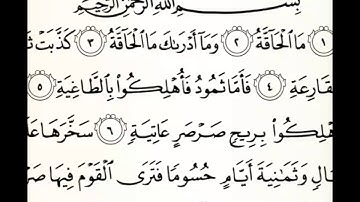 بِسْمِ اللَّهِ الرَّحْمَٰنِ الرَّحِيمِ
١ مَا الْحَاقَّةُ ٢ وَمَا أَدْرَىٰكَ مَا الْحَاقَّةُ ٣ كَذَّبَتْ ثَ
قَارِعَةِ ٤ فَأَمَّا ثَمُودُ فَأُهْلِكُوا بِالطَّاغِيَةِ ٥
هْلِكُوا بِرِيحٍ صَرْصَرٍ عَاتِيَةٍ ٦ سَخَّرَهَا عَلَ
الٍ وَثَمَٰنِيَةَ أَيَّامٍ حُسُومًا فَتَرَى الْقَوْمَ فِيهَا صَرْ